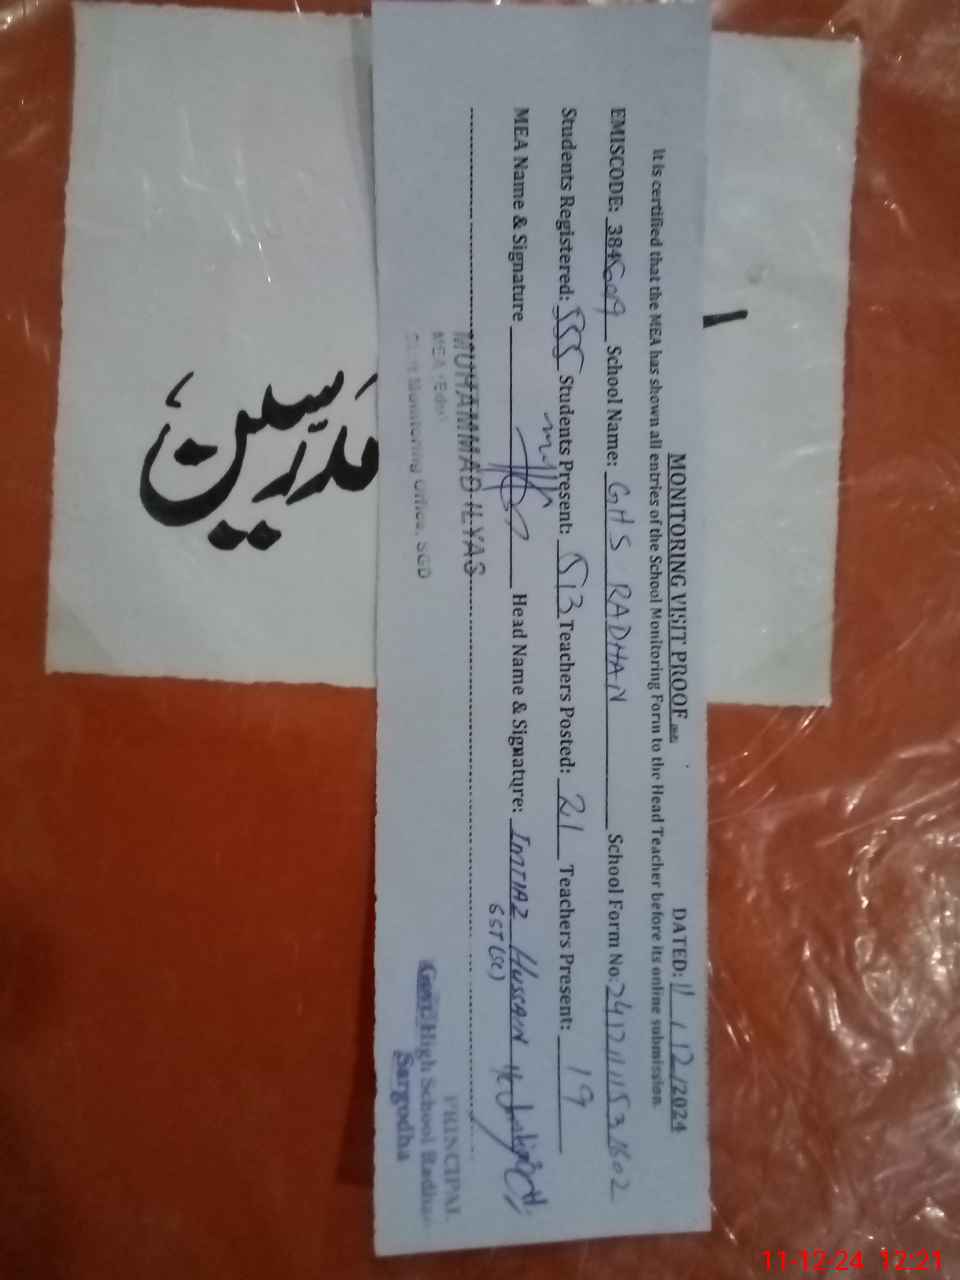 MONITORING VISIT PROOF DATED: 11/12/2024
It is certified that the MEA has shown all entries of the School Monitoring Form to the Head Teacher before its online submission.
EMISCODE: School Name: GHS RADHAN School Form No:
Students Registered: 555 Students Present: 513 Teachers Posted: 21 Teachers Present: 19
MEA Name & Signature Head Name & Signature: IMTIAZ HUSSAIN
SST (SC)
MUHAMMAD ILYAS
MEA (Edu)
Monitoring Office, SGD
PRINCIPAL
Govt. High School Radhan
Sargodha
مدرسین
11-12-24 12:21